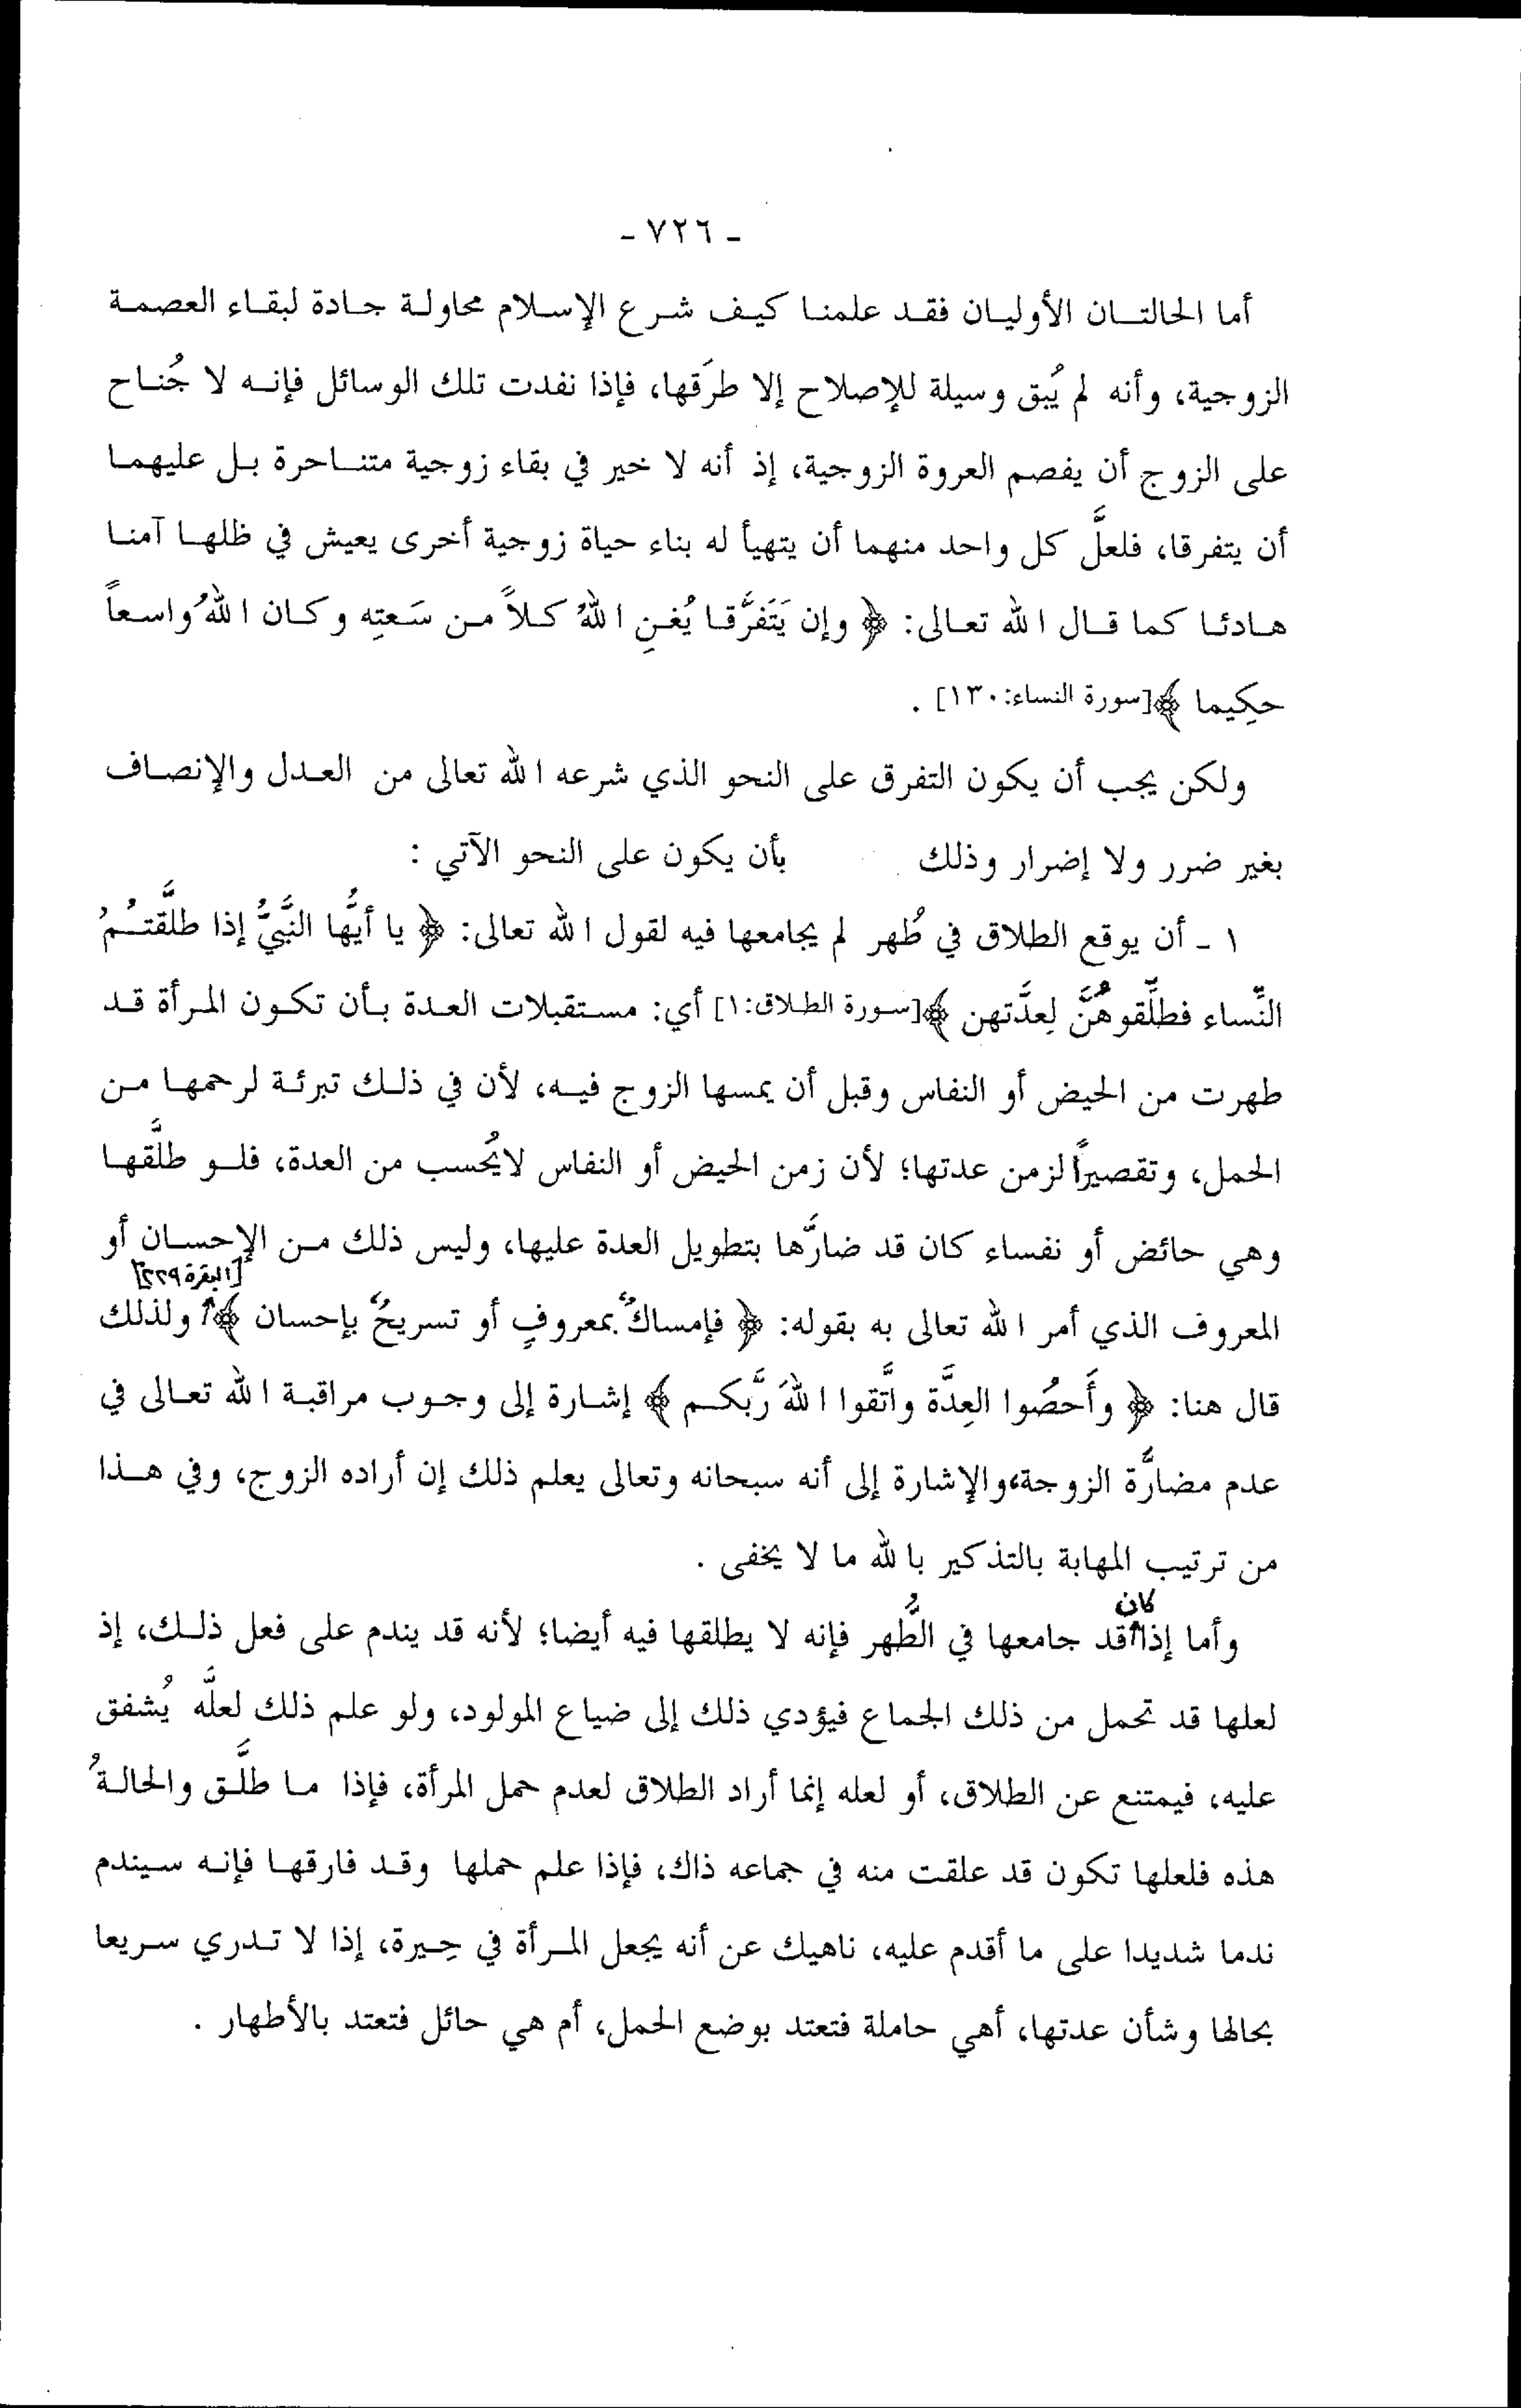 - ٧٢٦ -
أما الحالتان الأوليان فقد علمنا كيف شرع الإسلام محاولة جادة لبقاء العصمة
الزوجية، وأنه لم يُبق وسيلة للإصلاح إلا طرَقها، فإذا نفدت تلك الوسائل فإنه لا جُناح
على الزوج أن يفصم العروة الزوجية، إذ أنه لا خير في بقاء زوجية متناحرة بل عليهما
أن يتفرقا، فلعلَّ كل واحد منهما أن يتهيأ له بناء حياة زوجية أخرى يعيش في ظلها آمنا
هادئا كما قال الله تعالى: ﴿ وإن يَتَفرَّقا يُغنِ اللهُ كلاً من سَعتِه وكان اللهُ واسعاً
حكِيما ﴾[سورة النساء:١٣٠] .
ولكن يجب أن يكون التفرق على النحو الذي شرعه الله تعالى من العدل والإنصاف
بغير ضرر ولا إضرار وذلك بأن يكون على النحو الآتي :
١ ـ أن يوقع الطلاق في طُهر لم يجامعها فيه لقول الله تعالى: ﴿ يا أيُّها النَّبيُّ إذا طلَّقتُمُ
النِّساء فطلِّقوهُنَّ لِعدَّتهن ﴾[سورة الطلاق:١] أي: مستقبلات العدة بأن تكون المرأة قد
طهرت من الحيض أو النفاس وقبل أن يمسها الزوج فيه، لأن في ذلك تبرئة لرحمها من
الحمل، وتقصيراً لزمن عدتها؛ لأن زمن الحيض أو النفاس لايُحسب من العدة، فلو طلَّقها
وهي حائض أو نفساء كان قد ضارَّها بتطويل العدة عليها، وليس ذلك من الإحسان أو
[البقرة ٢٢٩]
المعروف الذي أمر الله تعالى به بقوله: ﴿ فإمساكٌ بمعروفٍ أو تسريحٌ بإحسان ﴾ ولذلك
قال هنا: ﴿ وأَحصُوا العِدَّة واتَّقوا اللهَ رَّبكم ﴾ إشارة إلى وجوب مراقبة الله تعالى في
عدم مضارَّة الزوجة،والإشارة إلى أنه سبحانه وتعالى يعلم ذلك إن أراده الزوج، وفي هذا
من ترتيب المهابة بالتذكير بالله ما لا يخفى .
كان
وأما إذا قد جامعها في الطُّهر فإنه لا يطلقها فيه أيضا؛ لأنه قد يندم على فعل ذلك، إذ
لعلها قد تحمل من ذلك الجماع فيؤدي ذلك إلى ضياع المولود، ولو علم ذلك لعلَّه يُشفق
عليه، فيمتنع عن الطلاق، أو لعله إنما أراد الطلاق لعدم حمل المرأة، فإذا ما طلَّق والحالةُ
هذه فلعلها تكون قد علقت منه في جماعه ذاك، فإذا علم حملها وقد فارقها فإنه سيندم
ندما شديدا على ما أقدم عليه، ناهيك عن أنه يجعل المرأة في حِيرة، إذا لا تدري سريعا
بحالها وشأن عدتها، أهي حاملة فتعتد بوضع الحمل، أم هي حائل فتعتد بالأطهار .